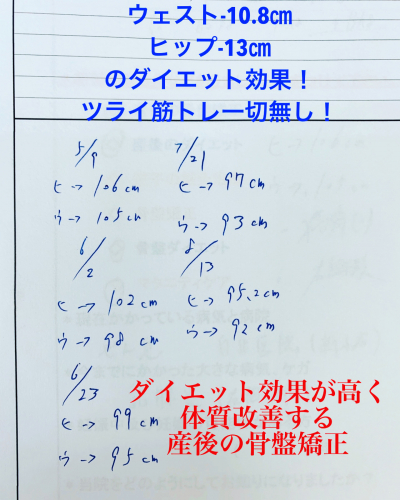 ウェスト-10.8㎝
ヒップ-13㎝
のダイエット効果！
ツライ筋トレ一切無し！
5/9
ヒ→106cm
ウ→105cm
6/2
ヒ→102cm
ウ→98cm
6/23
ヒ→99cm
ウ→95cm
7/21
ヒ→97cm
ウ→93cm
8/13
ヒ→95.2cm
ウ→92cm
ダイエット効果が高く
体質改善する
産後の骨盤矯正